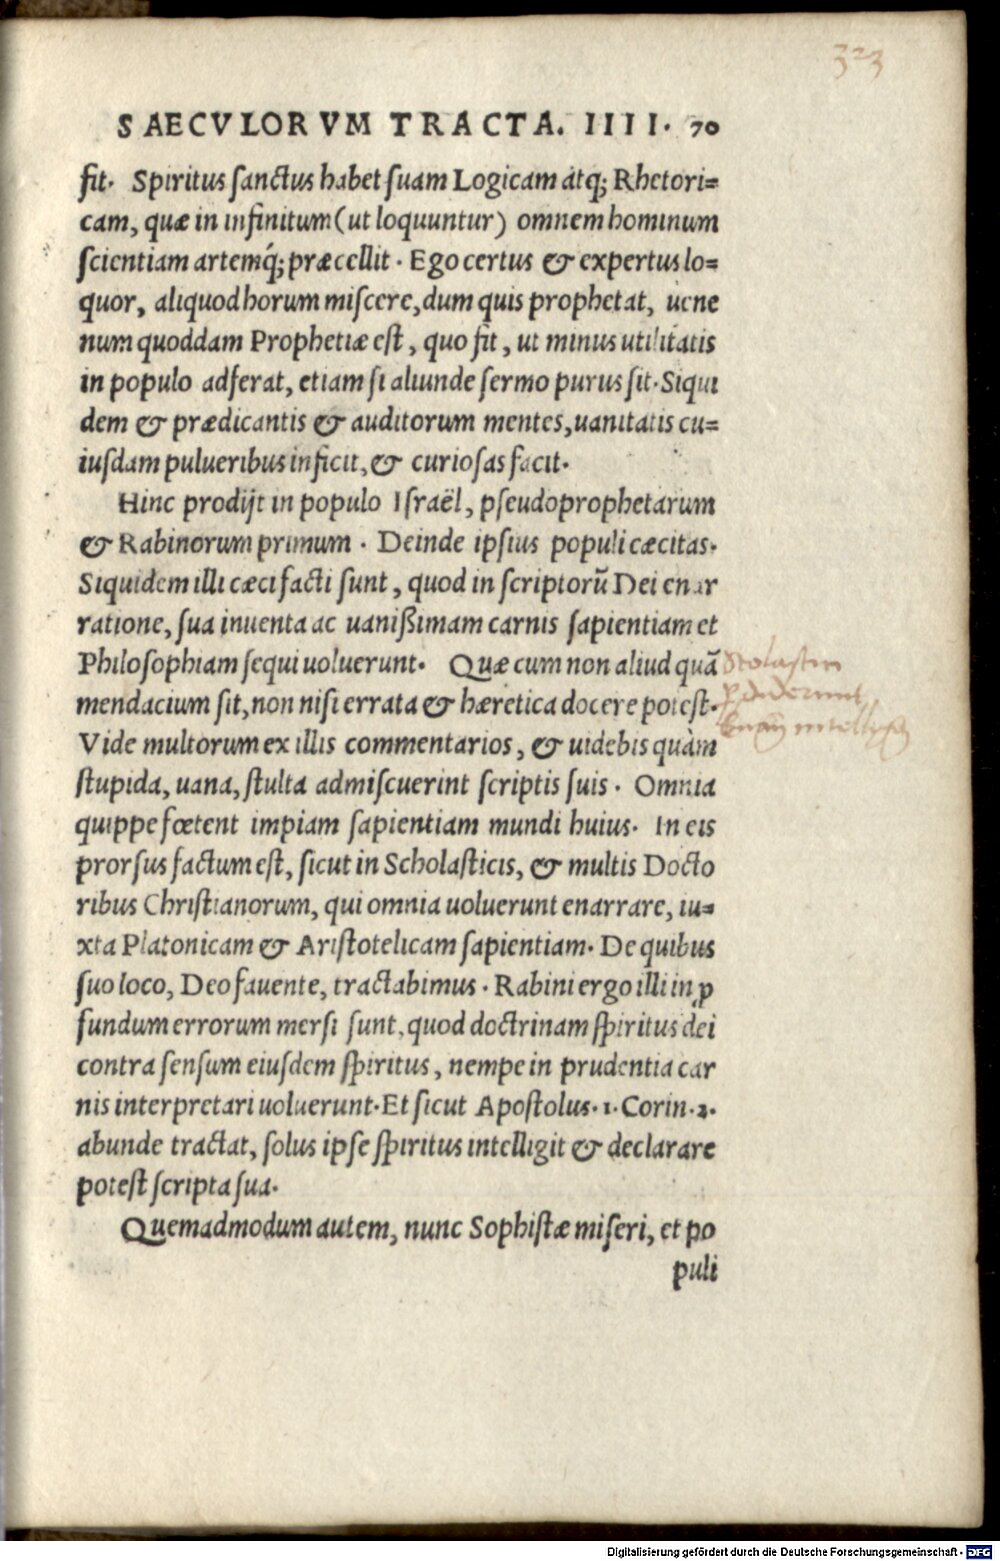 323
SAECVLORVM TRACTA. IIII. 70
fit. Spiritus ſanctus habet ſuam Logicam atq; Rhetori=
cam, quæ in infinitum (ut loquuntur) omnem hominum
ſcientiam artemq́; præcellit. Ego certus & expertus lo=
quor, aliquod horum miſcere, dum quis prophetat, uene
num quoddam Prophetiæ eſt, quo fit, ut minus utilitatis
in populo adferat, etiam ſi aliunde ſermo purus ſit. Siqui
dem & prædicantis & auditorum mentes, uanitatis cu=
iuſdam pulueribus inficit, & curioſas facit.
Hinc prodijt in populo Iſraël, pſeudoprophetarum
& Rabinorum primum. Deinde ipſius populi cæcitas.
Siquidem illi cæci facti ſunt, quod in ſcriptorũ Dei enar
ratione, ſua inuenta ac uanißimam carnis ſapientiam et
Philoſophiam ſequi uoluerunt. Quæ cum non aliud quã
mendacium ſit, non niſi errata & hæretica docere poteſt.
Vide multorum ex illis commentarios, & uidebis quàm
ſtupida, uana, ſtulta admiſcuerint ſcriptis ſuis. Omnia
quippe fœtent impiam ſapientiam mundi huius. In eis
prorſus factum eſt, ſicut in Scholaſticis, & multis Docto
ribus Chriſtianorum, qui omnia uoluerunt enarrare, iu=
xta Platonicam & Ariſtotelicam ſapientiam. De quibus
ſuo loco, Deo fauente, tractabimus. Rabini ergo illi in ꝓ
fundum errorum merſi ſunt, quod doctrinam ſpiritus dei
contra ſenſum eiuſdem ſpiritus, nempe in prudentia car
nis interpretari uoluerunt. Et ſicut Apoſtolus. 1. Corin. 2.
abunde tractat, ſolus ipſe ſpiritus intelligit & declarare
poteſt ſcripta ſua.
Quemadmodum autem, nunc Sophiſtæ miſeri, et po
puli
Digitalisierung gefördert durch die Deutsche Forschungsgemeinschaft - DFG